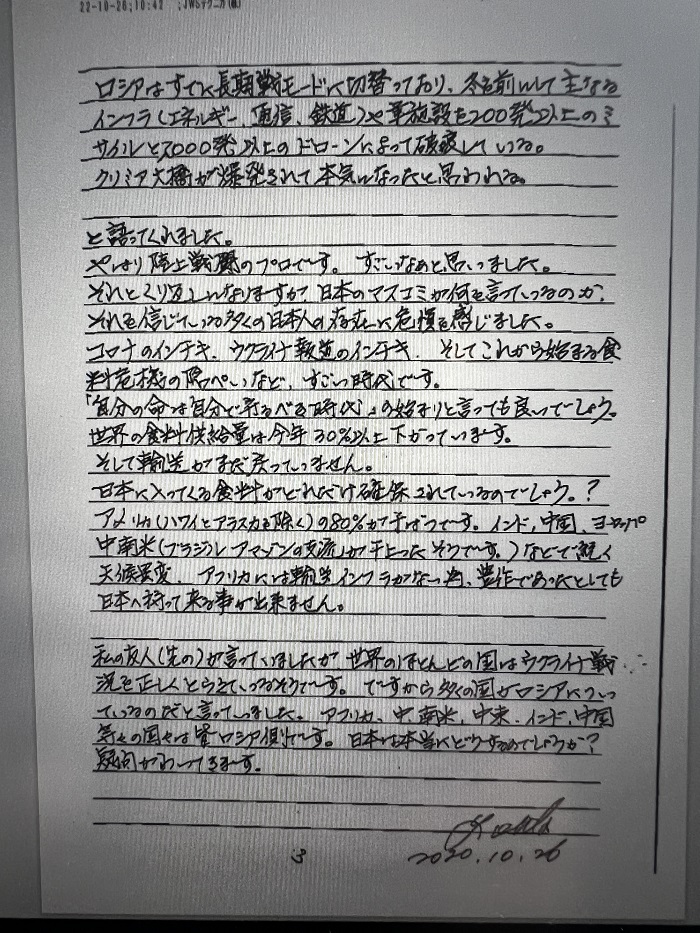 22-10-26;10:42 ;JWSテクニカ(株)
ロシアはすでに長期戦モードに切替っており、冬を前にして主なる
インフラ(エネルギー、通信、鉄道)や軍施設を200発以上のミ
サイルと2000発以上のドローンによって破壊している。
クリミア大橋が爆発されて本気になったと思われる。
と語ってくれました。
やはり陸上戦闘のプロです。すごいなあと思いました。
それとくり返しになりますが、日本のマスコミが何を言っているのか、
それを信じている多くの日本人の存在に危惧を感じました。
コロナのインチキ、ウクライナ報道のインチキ、そしてこれから始まる食
料危機の隠ぺいなど、すごい時代です。
「自分の命は自分で守るべき時代」の始まりと言っても良いでしょう。
世界の食料供給量は今年30%以上下がっています。
そして輸送がまだ戻っていません。
日本に入ってくる食料がどれだけ確保されているのでしょう。?
アメリカ(ハワイとアラスカを除く)の80%が干ばつです。インド、中国、ヨーロッパ
中南米(ブラジル アマゾンの支流が干上ったそうです。)などで続く
天候異変、アフリカには輸送インフラがない為、豊作であったとしても
日本へ持って来る事が出来ません。
私の友人(先の)が言っていましたが 世界のほとんどの国はウクライナ戦
況を正しくとらえているそうです。ですから多くの国がロシアについ
ているのだと言っていました。アフリカ、中、南米、中東、インド、中国
等々の国々は皆ロシア側です。日本は本当にどうするのでしょうか?
疑問がわいてきます。
3
2020.10.26